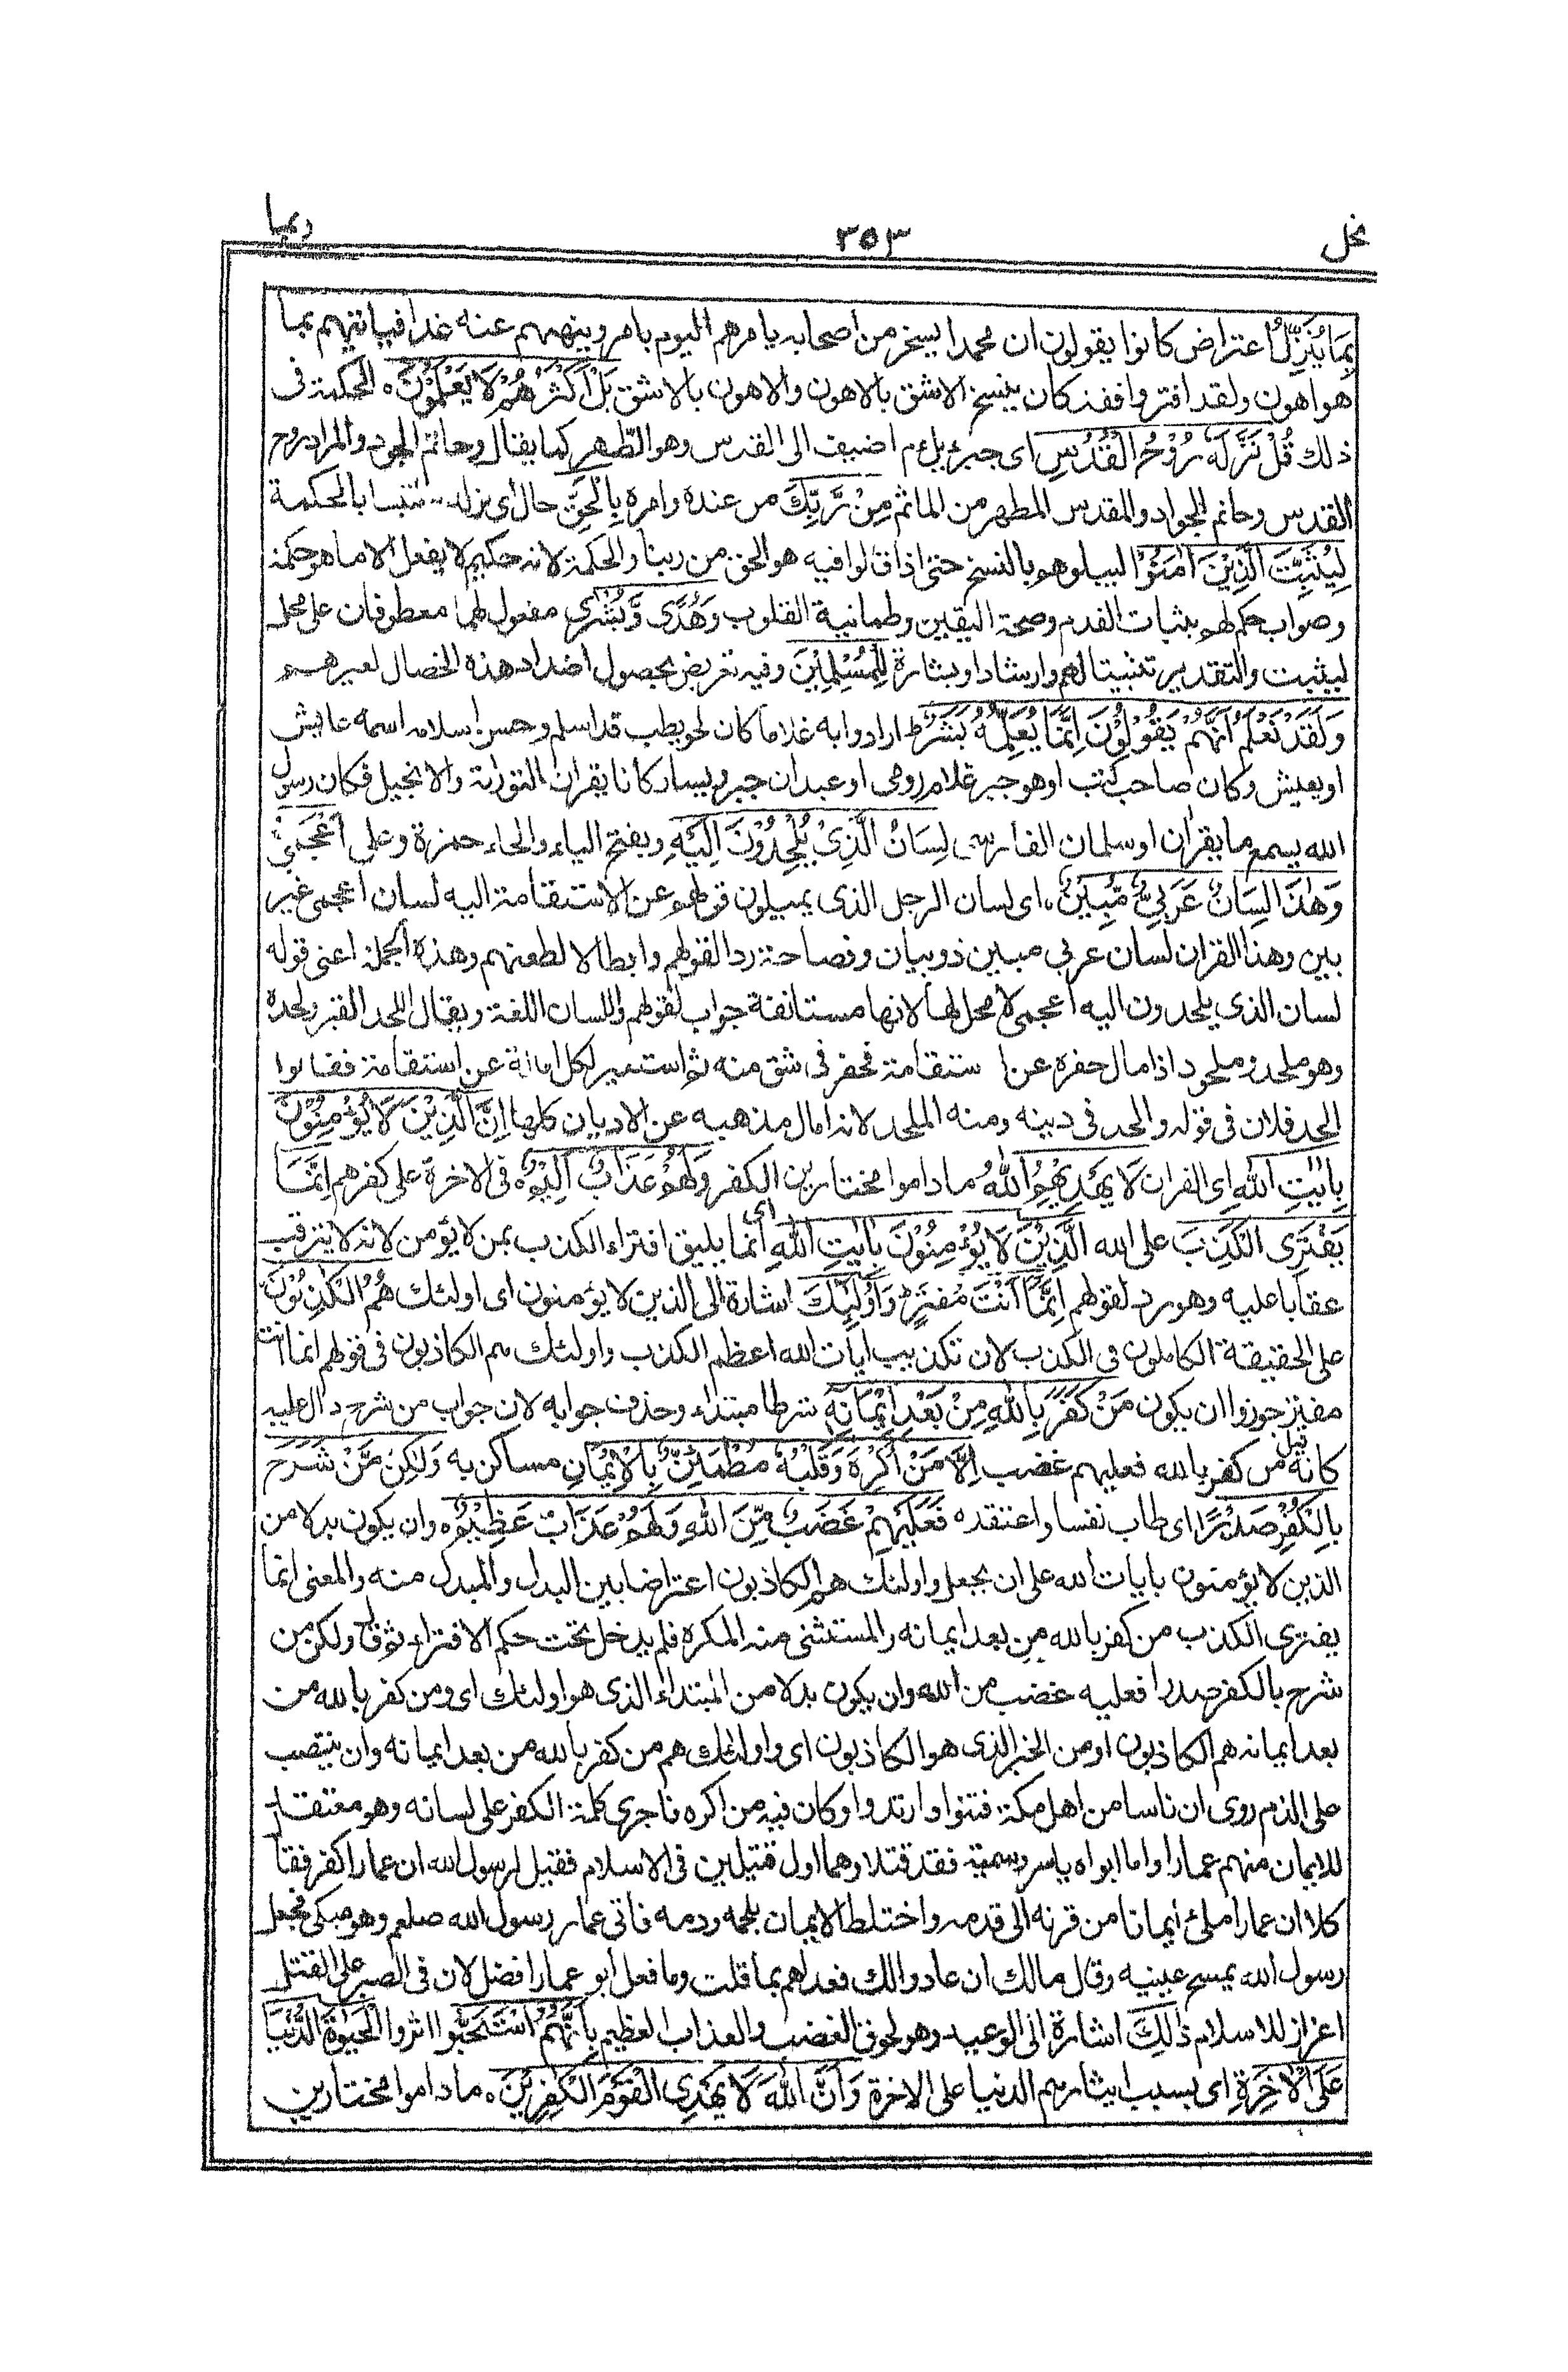 نحل ٣٥٣ ربما
بِمَا يُنَزِّلُ اعتراض كانوا يقولون ان محمدا يسخر من اصحابه يامرهم اليوم بامر وينهىهم عنه غدا فياتيهم بما
هو اهون ولقد افتروا فقد كان ينسخ الاشق بالاهون والاهون بالاشق بَلْ اَكْثَرُهُمْ لَا يَعْلَمُوْنَ ه الحكمة فى
ذلك قُلْ نَزَّلَهٗ رُوْحُ الْقُدُسِ اى جبرءيل ءم اضيف الى القدس وهو الطّهر كما يقال وحاتم الجود والمراد روح
القدس وحاتم الجواد والمقدس المطهر من الماثم مِنْ رَّبِّكَ من عنده وامره بِالْحَقِّ حال اى نزله ملتبسا بالحكمة
لِيُثَبِّتَ الَّذِيْنَ اٰمَنُوْا ليبلوهم بالنسخ حتى اذا قالوا فيه هو الحق من ربنا والحكمة لانه حكيم لا يفعل الا ما هو حكمة
وصواب حكم لهم بثبات القدم وصحة اليقين وطمانية القلوب وَهُدًى وَّبُشْرٰى مفعول لهما معطوفان على محل
ليثبت والتقدير تثبيتا لهم وارشادا وبشارة لِلْمُسْلِمِيْنَ وفيه تعريض بحصول اضداد هذه الخصال لغيرهم
وَلَقَدْ نَعْلَمُ اَنَّهُمْ يَقُوْلُوْنَ اِنَّمَا يُعَلِّمُهٗ بَشَرٌ ط ارادوا به غلاما كان لحويطب قد اسلم وحسن اسلامه اسمه عايش
او يعيش وكان صاحب كتب او هو جبر غلام رومى او عبدان جبر ويسار كانا يقران التورىة والانجيل فكان رسول
الله يسمع ما يقران او سلمان الفارسى لِسَانُ الَّذِيْ يُلْحِدُوْنَ اِلَيْهِ وبفتح الياء والحاء حمزة وعلى اَعْجَمِيٌّ
وَهٰذَا لِسَانٌ عَرَبِيٌّ مُّبِيْنٌ ه اى لسان الرجل الذى يميلون قولهم عن الاستقامة اليه لسان اعجمى غير
بين وهذا القران لسان عربى مبين ذو بيان وفصاحة ردا لقولهم وابطالا لطعنهم وهذه الجملة اعنى قوله
لسان الذى يلحدون اليه اعجمى لا محل لها لانها مستانفة جواب لقولهم واللسان اللغة ويقال الحد القبر ولحده
وهو ملحد وملحود اذا مال حفره عن استقامة فحفر فى شق منه ثم استعير لكل امالة عن استقامة فقالوا
الحد فلان فى قوله والحد فى دينه ومنه الملحد لانه امال مذهبه عن الاديان كلها اِنَّ الَّذِيْنَ لَا يُؤْمِنُوْنَ
بِاٰيٰتِ اللهِ اى القران لَا يَهْدِيْهِمُ اللهُ ما داموا مختارين الكفر وَلَهُمْ عَذَابٌ اَلِيْمٌ ه فى الاخرة على كفرهم اِنَّمَا
يَفْتَرِى الْكَذِبَ على الله الَّذِيْنَ لَا يُؤْمِنُوْنَ بِاٰيٰتِ اللهِ اى انما يليق افتراء الكذب بمن لا يؤمن لانه لا يترقب
عقابا عليه وهو رد لقولهم اِنَّمَا اَنْتَ مُفْتَرٍ وَاُولٰٓئِكَ اشارة الى الذين لا يؤمنون اى اولئك هُمُ الْكٰذِبُوْنَ
على الحقيقة الكاملون فى الكذب لان تكذيب ايات الله اعظم الكذب واولئك هم الكاذبون فى قولهم انما انت
مفتر جوزوا ان يكون مَنْ كَفَرَ بِاللهِ مِنْ بَعْدِ اِيْمَانِهٖ شرطا مبتداء وحذف جوابه لان جواب من شرح دال عليه
كانه قيل من كفر بالله فعليهم غضب اِلَّا مَنْ اُكْرِهَ وَقَلْبُهٗ مُطْمَئِنٌّ بِالْاِيْمَانِ مساكن به وَلٰكِنْ مَّنْ شَرَحَ
بِالْكُفْرِ صَدْرًا اى طاب نفسا واعتقده فَعَلَيْهِمْ غَضَبٌ مِّنَ اللهِ وَلَهُمْ عَذَابٌ عَظِيْمٌ ه وان يكون بدلا من
الذين لا يؤمنون بايات الله على ان يجعل واولئك هم الكاذبون اعتراضا بين البدل والمبدل منه والمعنى انما
يفترى الكذب من كفر بالله من بعد ايمانه والمستثنى منه المكره فلم يدخل تحت حكم الافتراء ثم قال ولكن من
شرح بالكفر صدرا فعليه غضب من الله وان يكون بدلا من المبتداء الذى هو اولئك اى ومن كفر بالله من
بعد ايمانه هم الكاذبون او من الخبر الذى هو الكاذبون اى واولئك هم من كفر بالله من بعد ايمانه وان ينتصب
على الذم روى ان ناسا من اهل مكة فتنوا وارتدوا وكان فيه من اكره فاجرى كلمة الكفر على لسانه وهو معتقد
للايمان منهم عمارا واما ابواه ياسر وسمية فقد قتلا وهما اول قتيلين فى الاسلام فقيل لرسول الله ان عمارا كفر فقا
كلا ان عمارا ملئ ايمانا من قرنه الى قدمه واختلط الايمان بلحمه ودمه فاتى عمار رسول الله صلعم وهو يبكى فجعل
رسول الله يمسح عينيه وقال مالك ان عادوا لك فعد لهم بما قلت وما فعل ابو عمار افضل لان فى الصبر على القتل
اعزاز للاسلام ذٰلِكَ اشارة الى الوعيد وهو لحوق الغضب والعذاب العظيم بِاَنَّهُمُ اسْتَحَبُّوا اثروا الْحَيٰوةَ الدُّنْيَا
عَلَى الْاٰخِرَةِ اى بسبب ايثارهم الدنيا على الاخرة وَاَنَّ اللهَ لَا يَهْدِى الْقَوْمَ الْكٰفِرِيْنَ ه ما داموا مختارين